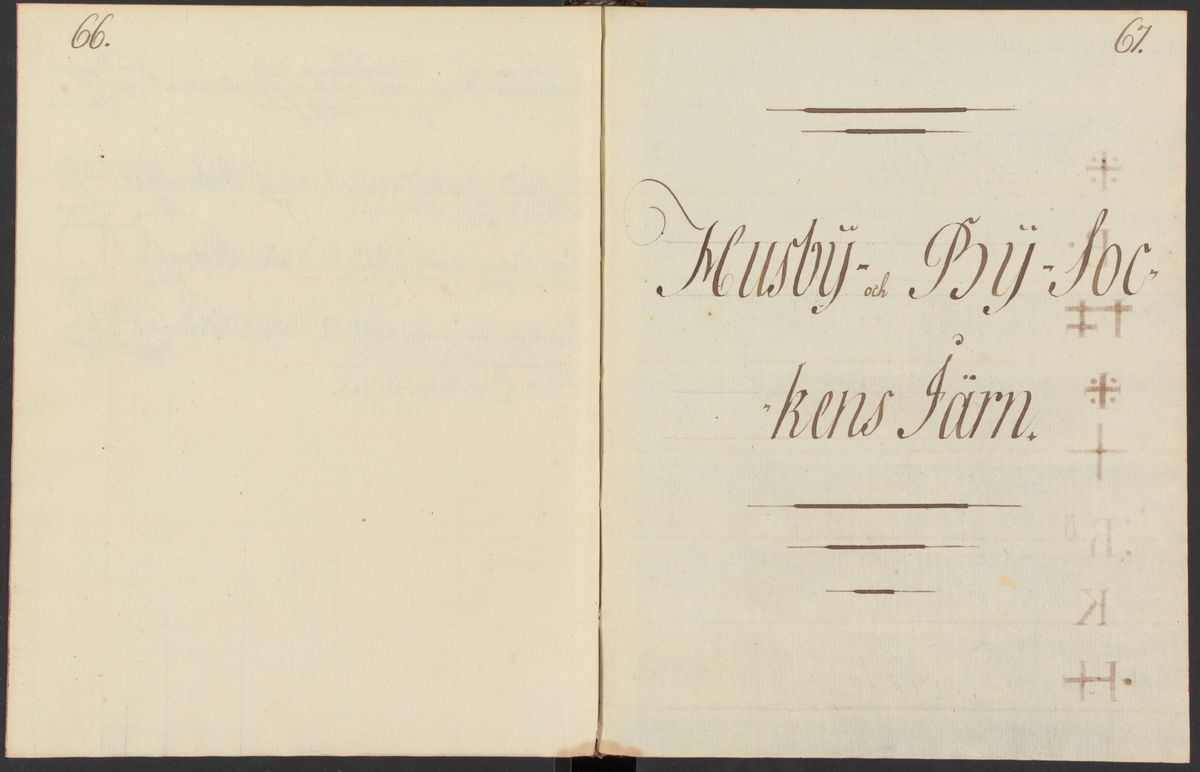 66.
67.
Husbÿ- och Bÿ-Soc-
-kens Järn.